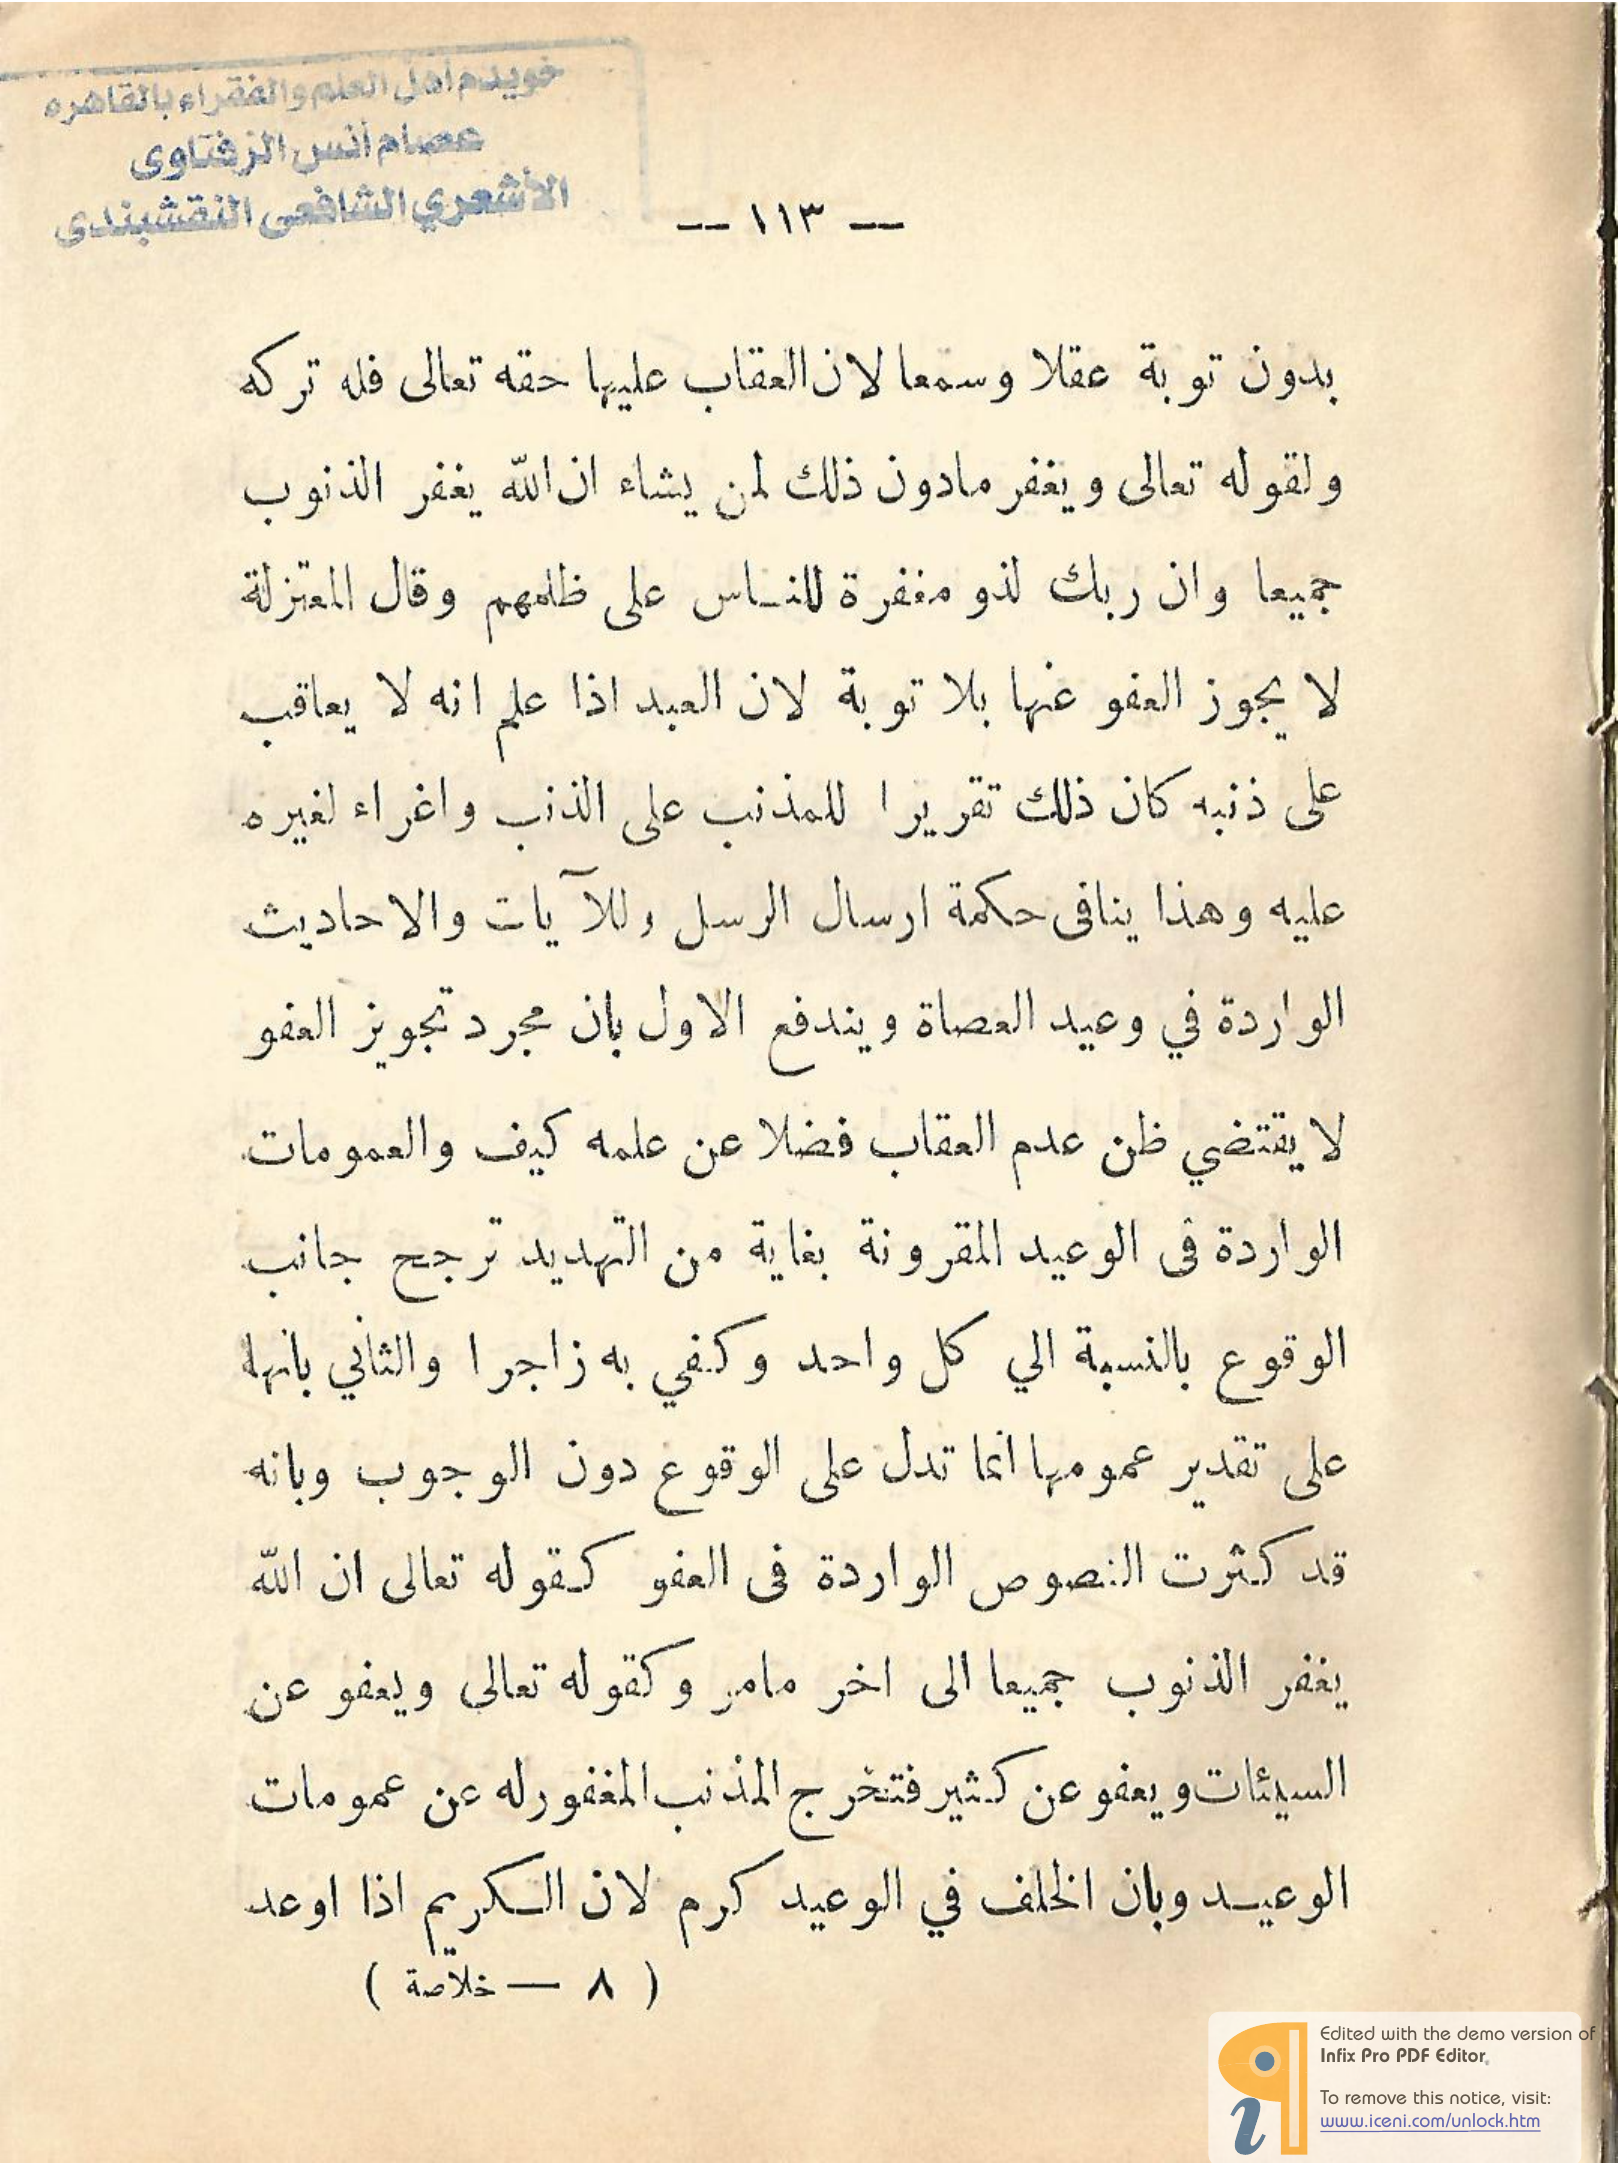 خويدم أهل العلم والفقراء بالقاهره
عصام أنس الزفتاوى
الأشعري الشافعى النقشبندى
— ١١٣ —
بدون توبة عقلا وسمعا لان العقاب عليها حقه تعالى فله تركه
ولقوله تعالى ويغفر مادون ذلك لمن يشاء ان الله يغفر الذنوب
جميعا وان ربك لذو مغفرة للناس على ظلمهم وقال المعتزلة
لا يجوز العفو عنها بلا توبة لان العبد اذا علم انه لا يعاقب
على ذنبه كان ذلك تقريرا للمذنب على الذنب واغراء لغيره
عليه وهذا ينافى حكمة ارسال الرسل وللآيات والاحاديث
الواردة في وعيد العصاة ويندفع الاول بان مجرد تجويز العفو
لا يقتضي ظن عدم العقاب فضلا عن علمه كيف والعمومات
الواردة فى الوعيد المقرونة بغاية من التهديد ترجح جانب
الوقوع بالنسبة الي كل واحد وكفي به زاجرا والثاني بانها
على تقدير عمومها انما تدل على الوقوع دون الوجوب وبانه
قد كثرت النصوص الواردة فى العفو كقوله تعالى ان الله
يغفر الذنوب جميعا الى اخر مامر وكقوله تعالى ويعفو عن
السيئات ويعفو عن كثير فتخرج المذنب المغفورله عن عمومات
الوعيد وبان الخلف في الوعيد كرم لان الكريم اذا اوعد
( ٨ — خلاصة )
Edited with the demo version of
Infix Pro PDF Editor.
To remove this notice, visit:
www.iceni.com/unlock.htm